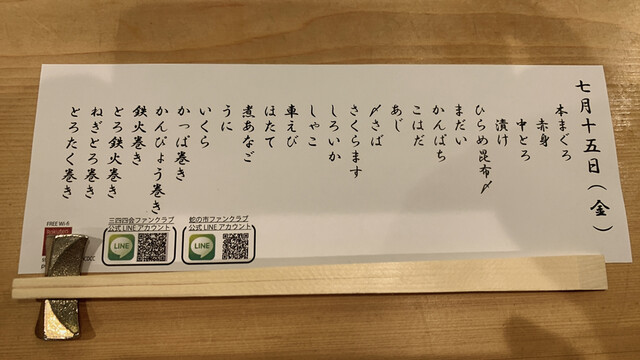 七月十五日（金）
本まぐろ
赤身
中とろ
漬け
ひらめ昆布〆
まだい
かんぱち
こはだ
あじ
〆さば
さくらます
しろいか
しゃこ
車えび
ほたて
煮あなご
うに
いくら
かっぱ巻き
かんぴょう巻き
鉄火巻き
とろ鉄火巻き
ねぎとろ巻き
とろたく巻き
蛇の市ファンクラブ
公式LINEアカウント
LINE
三四四会ファンクラブ
公式LINEアカウント
LINE
FREE Wi-Fi
Rakuten